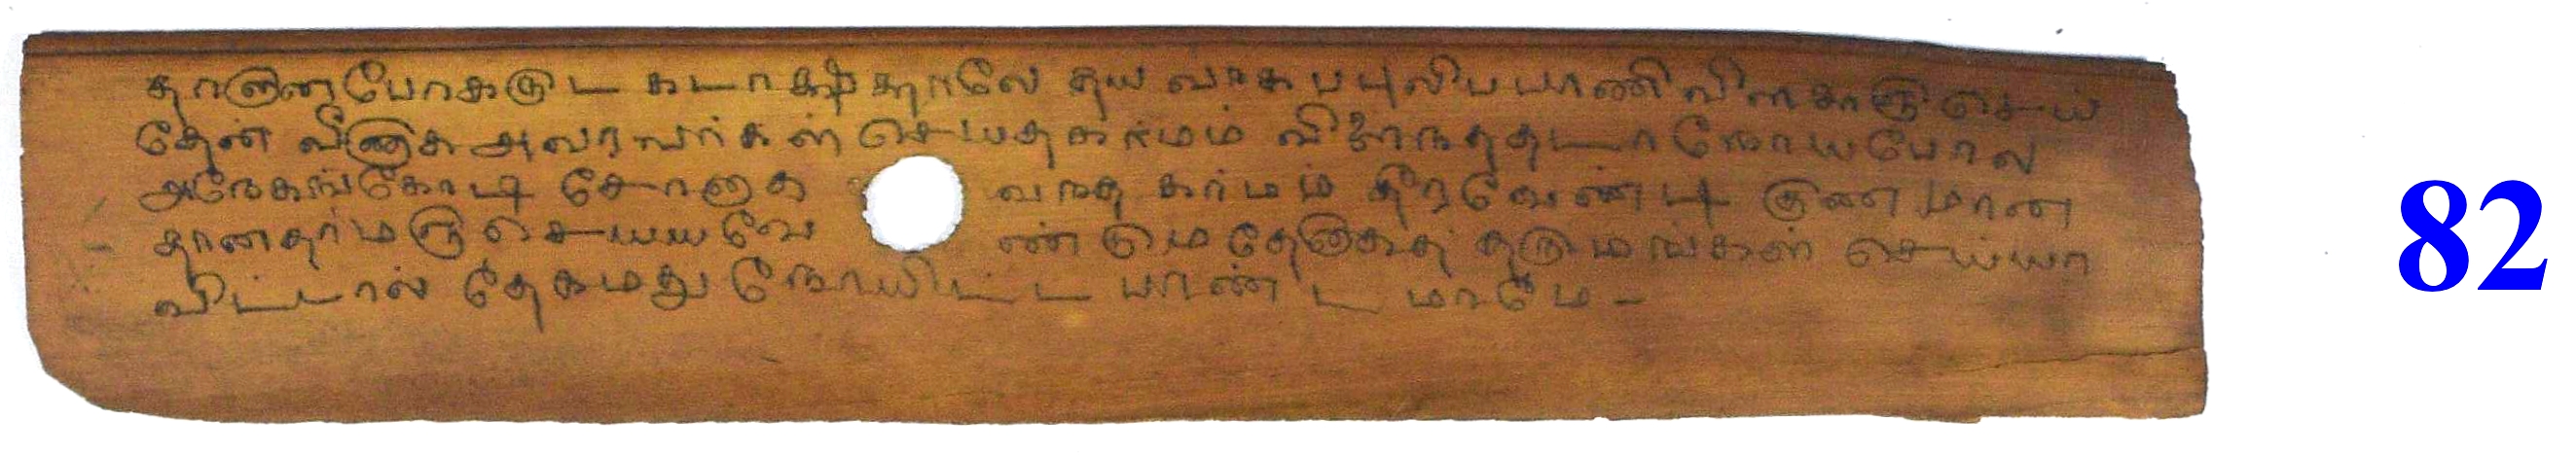 தானான போகருட கடாக்ஷத்தாலே தயவாகபபுலிபபாணி விளகாஞ செய்
தேன் வீணுக அவரவர்கள் செயதகர்மம் விளைநததடா நோயபோல
அநேகங்கோடி சேனாத வநத கர்மம் தீரவேண்டி குண மான
தானதர்மஞ செயயவே ண்டும தேனுககு தருமங்கள் செய்யா
விட்டால் தேகமது நோயிட்ட பாண்ட மாமே -
82